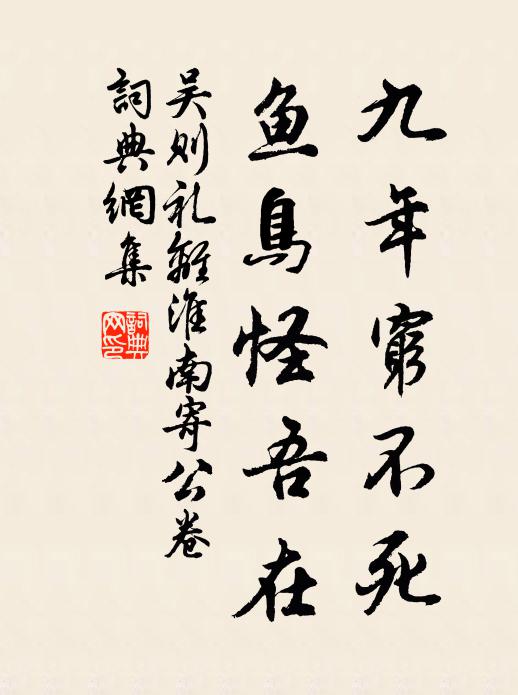 九年窮不死
鱼鳥怪吾在
吴则礼離淮南寄公卷
詞典網集
詞典网印